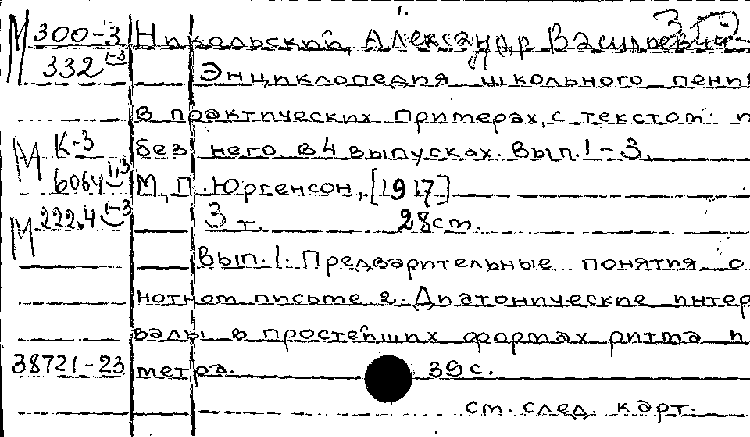 1.
М 300-3 Никольский, Александр Васильевич
332 1-3 Энциклопедия школьного пени
в практических примерах, с текстом п
М К-3 без него в 4 выпусках. Вып. 1-3.
6064 М, П. Юргенсон, [1917]
М 222.4 1-3 3 т. 28 см.
Вып. 1. Предварительные понятия о
нотном письме 2. Диатонические интер
валы в простейших формах ритма и
38721-23 метра. 39 с.
см. след. карт.